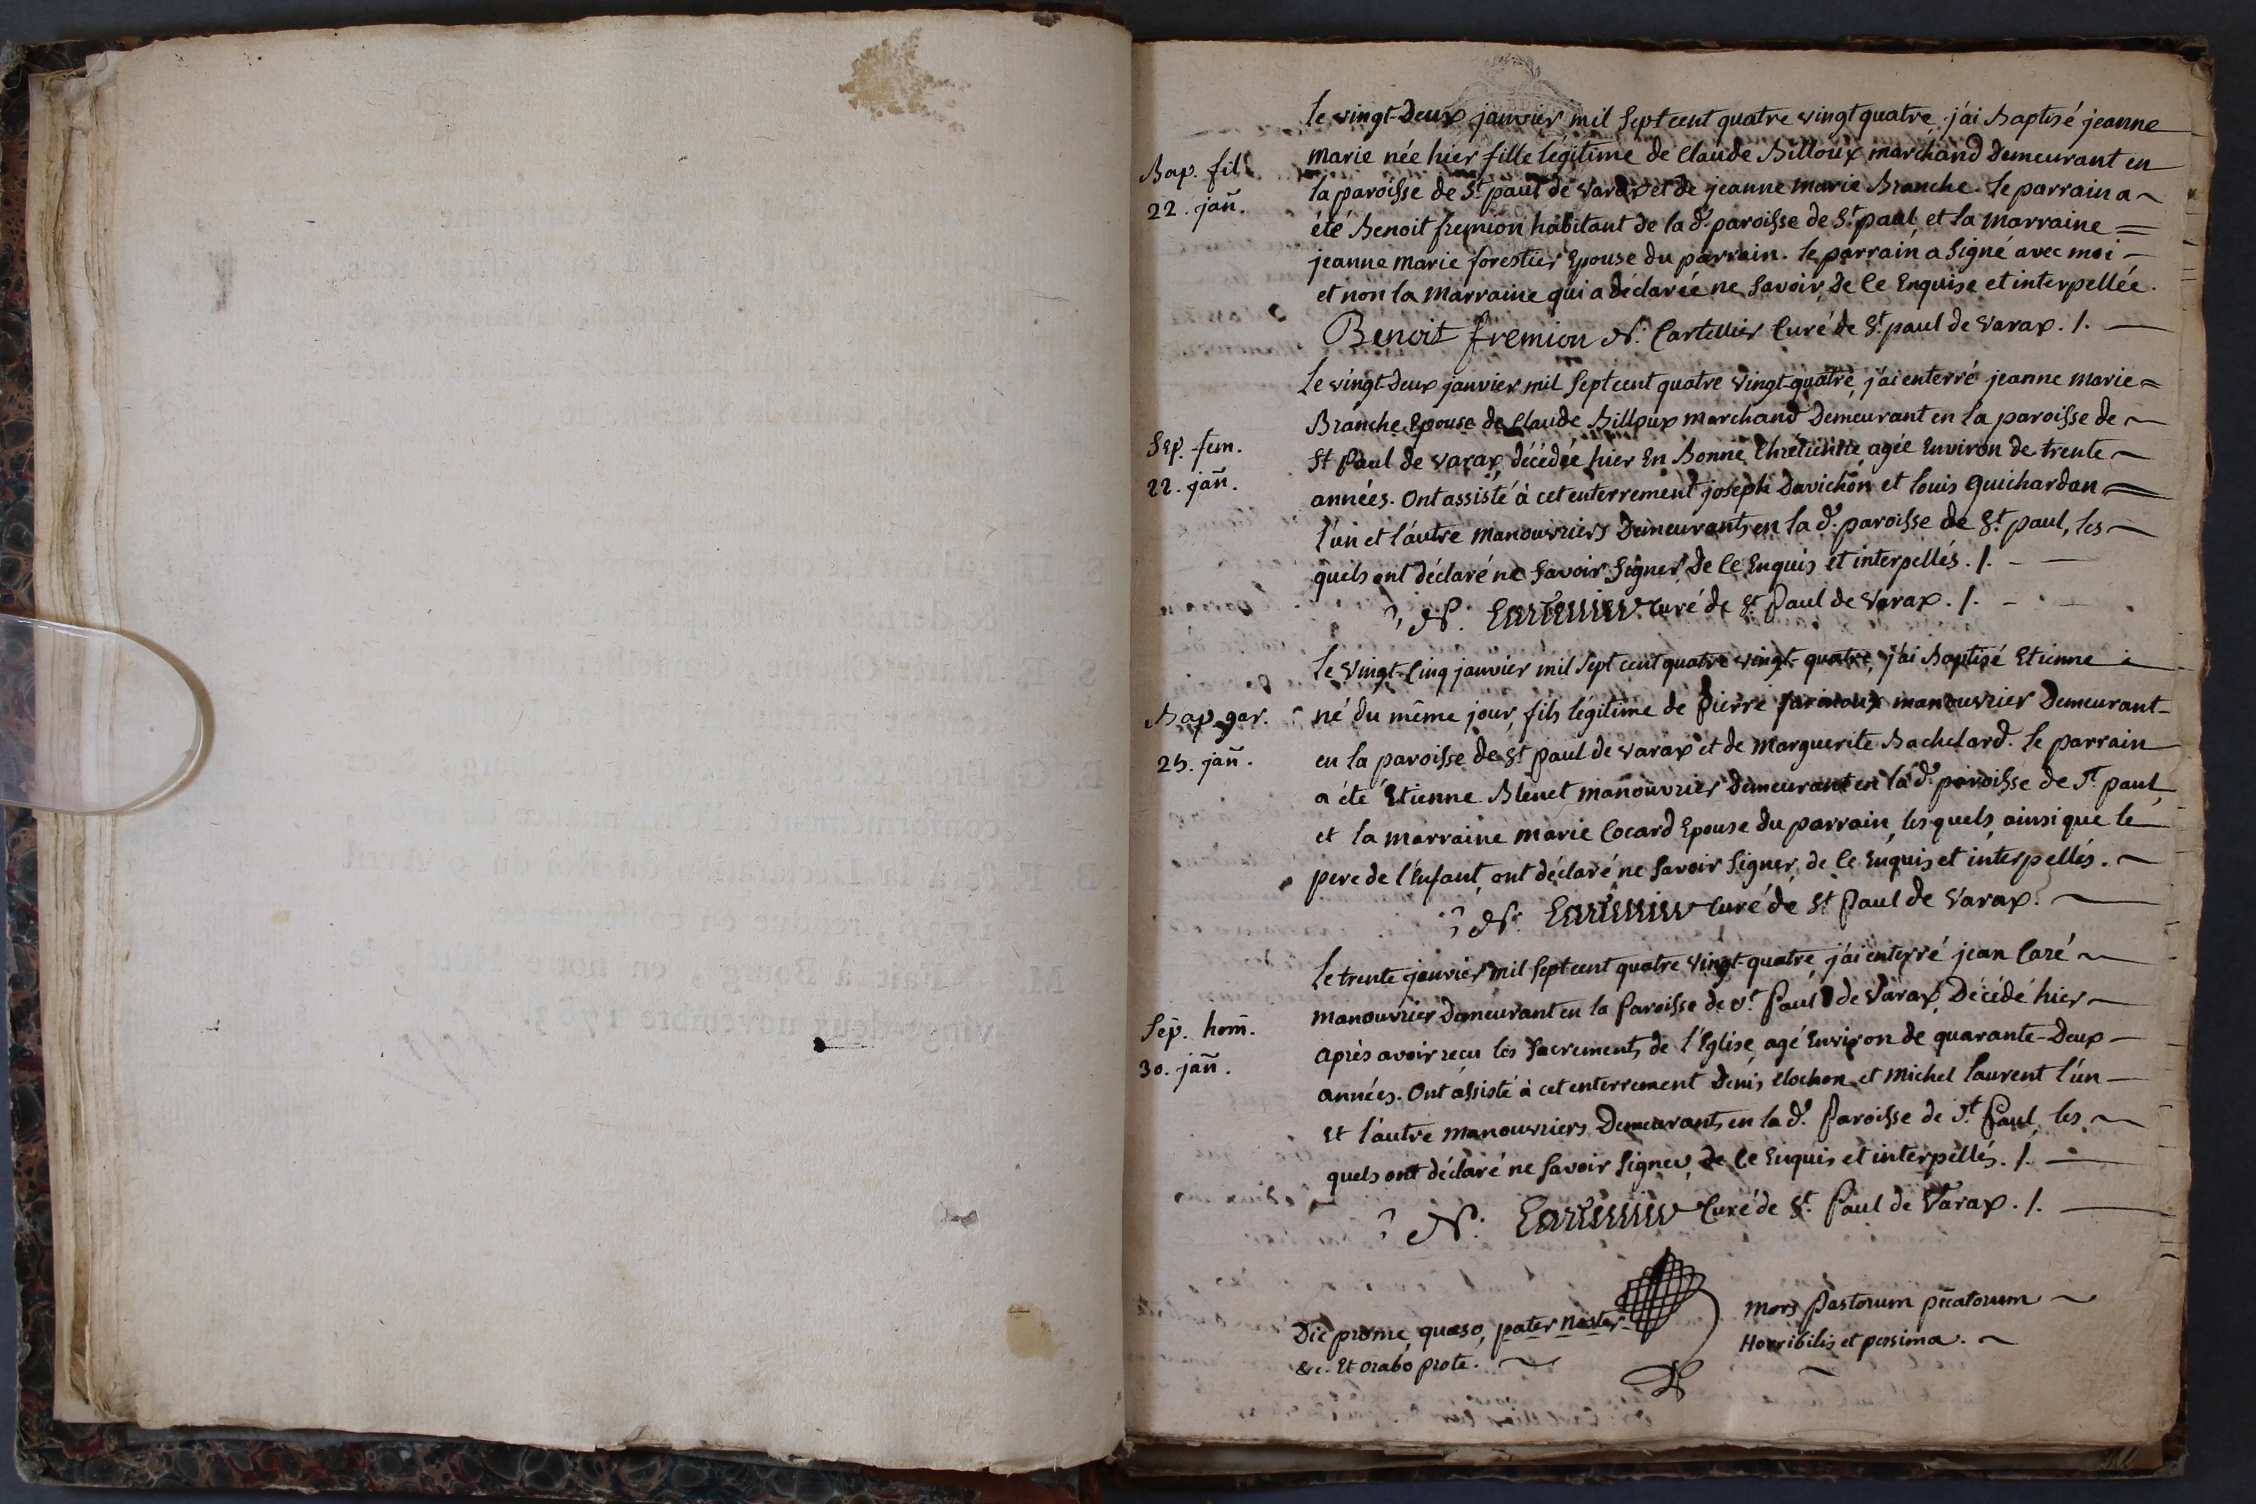 Le vingt-Deux janvier mil sept cent quatre vingt quatre j'ai Baptisé jeanne
Bap. fil.
22. jan̄.
marie née hier fille légitime de Claude Billoux marchand Demeurant en
la paroisse de St. paul de Varax et de jeanne marie Branche. le parrain a ~
été Benoit fremion habitant de la de. paroisse de St. paul, et la Marraine =
jeanne marie forestier Epouse du parrain. le parrain a signé avec moi -
et non la Marraine qui a déclarée ne savoir, De Ce Enquise et interpellée.
Benoit fremion N. Cartellier Curé de St. paul de Varax. /. —
Le vingt-Deux janvier mil sept cent quatre vingt-quatre, j'ai enterré jeanne marie =
Sep. fem.
22. jan̄.
Branche, Epouse de Claude Billoux marchand Demeurant en la paroisse de ~
St Paul de Varax, décédée hier En Bonne Chrétienne agée Environ de trente ~
années. Ont assisté à cet enterrement joseph Davichon et louis Guichardan =
l'un et l'autre manouvriers Demeurants en la de. paroisse de St. paul, les ~
quels ont déclaré ne Savoir Signer, De Ce Enquis et interpellés. /. - —
N. Cartellier Curé de St. Paul de Varax. /. -
Le Vingt-Cinq janvier mil sept cent quatre vingt-quatre, j'ai Baptisé Etienne
Bap. gar.
25. jan̄.
né du même jour, fils légitime de Pierre manouvrier Demeurant-
en la paroisse de St Paul de Varax et de Marguerite Bachelard. le parrain
a été Etienne Blenet manouvrier Demeurant en la de. paroisse de St. paul,
et la marraine marie Cocard Epouse du parrain, les quels, ainsi que le
pere de l'Enfant, ont déclaré ne Savoir Signer, de Ce Enquis et interpellés. ~
N. Cartellier Curé de St Paul de Varax. —
Le trente janvier mil sept cent quatre vingt-quatre j'ai enterré jean Caré ~
Sep̄. hom̄.
30. jan̄.
manouvrier Demeurant en la Paroisse de St. Paul de Varax, Décédé hier ~
après avoir recu les Sacrements de l'Eglise, agé Environ de quarante-Deux -
années. Ont assisté à cet enterrement Denis Clochon et Michel laurent l'un —
et l'autre manouvriers Demeurants en la de. Paroisse de St. Paul, les ~
quels ont déclaré ne Savoir Signer, de Ce Enquis et interpellés. /. —
N. Cartellier Curé de St. Paul de Varax. /. —
Dic prome, quaeso, pater Noster
&c. Et orabo prote. ~
Mors Pastorum pccatorum ~
Horribilis et pessima. ~